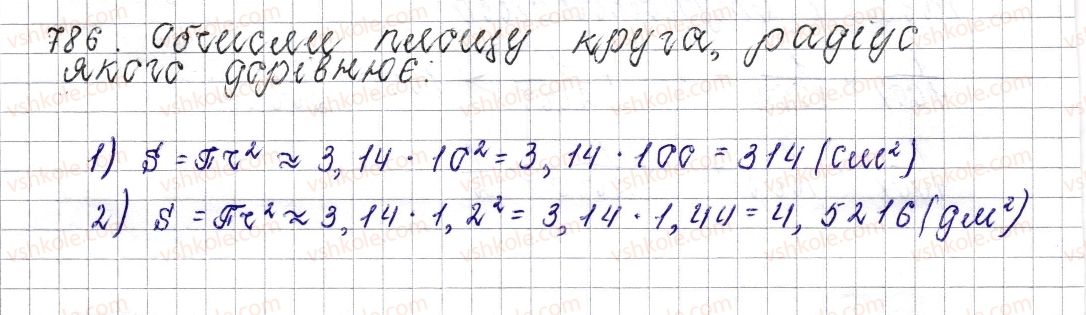 786. Обчисли площу круга, радіус
якого дорівнює:
1) S = πr² ≈ 3,14 · 10² = 3,14 · 100 = 314 (см²)
2) S = πr² ≈ 3,14 · 1,2² = 3,14 · 1,44 = 4,5216 (дм²)